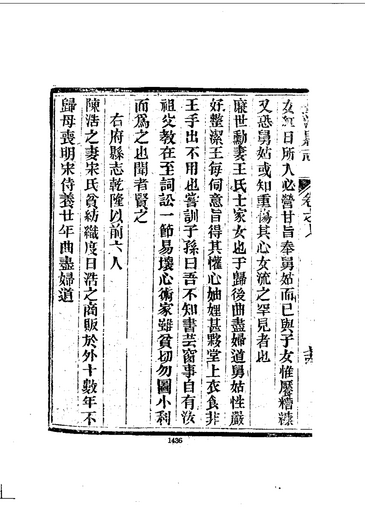 女紅日所入必營甘旨奉舅姑而已與子女惟饜糟糠
又恐舅姑或知重傷其心女流之罕見者也
廢世勳妻王氏士家女也于歸後曲盡婦道舅姑性嚴
好整潔王每伺意旨得其懽心妯娌甚夥堂上衣食非
王手出不用也嘗訓子孫曰吾不知書芸窗事自有汝
祖父教在至詞訟一節易壞心術家雖貧切勿圖小利
而爲之也聞者賢之
右府縣志乾隆以前六人
陳浩之妻宋氏貧紡織度日浩之商販於外十數年不
歸母喪明宋侍養廿年曲盡婦道
1436